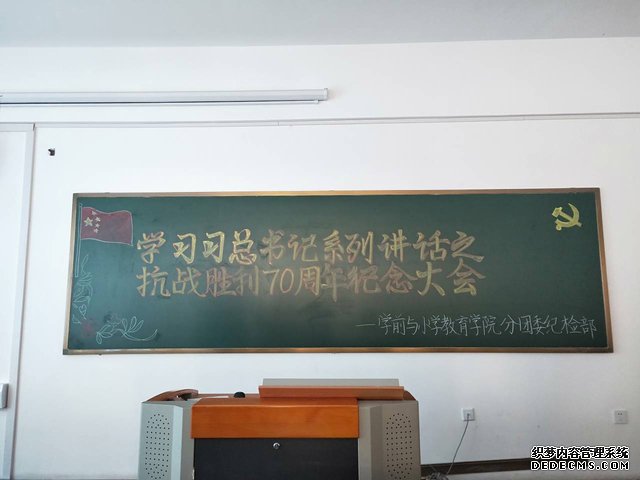 学习习总书记系列讲话之
抗战胜利70周年纪念大会
——学前与小学教育学院分团委纪检部
织梦内容管理系统
DEDECMS.COM